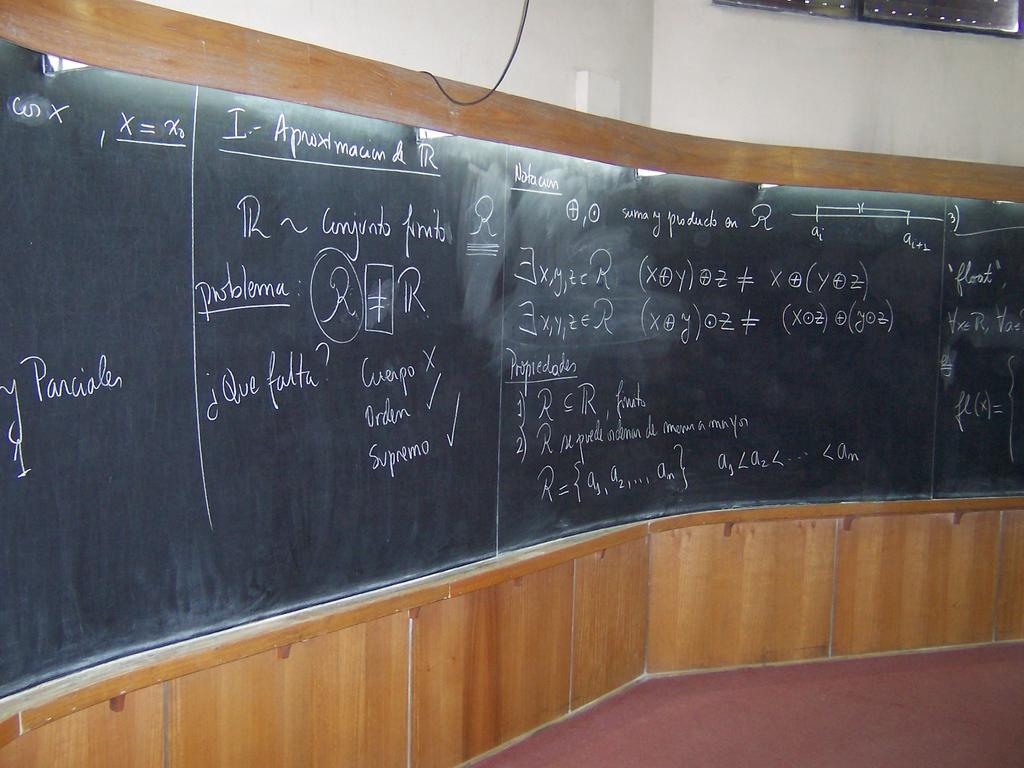 cos x , x = x₀
y Parciales
I.- Aproximacion de ℝ
ℝ ~ Conjunto finito ℛ
problema: ℛ ≠ ℝ
¿Que falta? Cuerpo X
Orden ✓
Supremo ✓
Notacion
⊕, ⊙ suma y producto en ℛ
aᵢ aᵢ₊₁
∃ x,y,z ∈ ℛ (x⊕y)⊕z ≠ x⊕(y⊕z)
∃ x,y,z ∈ ℛ (x⊕y)⊙z ≠ (x⊙z)⊕(y⊙z)
Propiedades
1) ℛ ⊆ ℝ, finito
2) ℛ se puede ordenar de menor a mayor
ℛ = {a₁, a₂, ..., aₙ} a₁ < a₂ < ... < aₙ
3)
"float",
∀x∈ℝ, ∀a
fl(x) = {